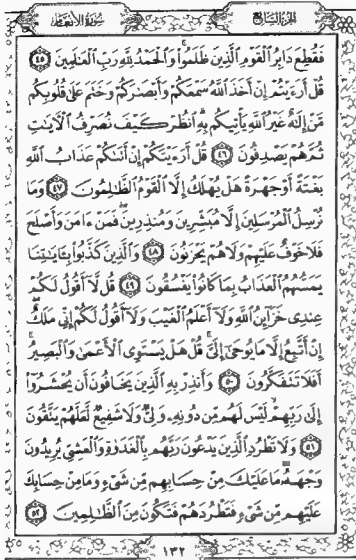 الجزء السابع
سورة الأنعام
فَقُطِعَ دَابِرُ ٱلْقَوْمِ ٱلَّذِينَ ظَلَمُوا۟ وَٱلْحَمْدُ لِلَّهِ رَبِّ ٱلْعَٰلَمِينَ ٤٥
قُلْ أَرَءَيْتُمْ إِنْ أَخَذَ ٱللَّهُ سَمْعَكُمْ وَأَبْصَٰرَكُمْ وَخَتَمَ عَلَىٰ قُلُوبِكُم
مَّنْ إِلَٰهٌ غَيْرُ ٱللَّهِ يَأْتِيكُم بِهِ ٱنظُرْ كَيْفَ نُصَرِّفُ ٱلْءَايَٰتِ
ثُمَّ هُمْ يَصْدِفُونَ ٤٦ قُلْ أَرَءَيْتَكُمْ إِنْ أَتَىٰكُمْ عَذَابُ ٱللَّهِ
بَغْتَةً أَوْ جَهْرَةً هَلْ يُهْلَكُ إِلَّا ٱلْقَوْمُ ٱلظَّٰلِمُونَ ٤٧ وَمَا
نُرْسِلُ ٱلْمُرْسَلِينَ إِلَّا مُبَشِّرِينَ وَمُنذِرِينَ فَمَنْ ءَامَنَ وَأَصْلَحَ
فَلَا خَوْفٌ عَلَيْهِمْ وَلَا هُمْ يَحْزَنُونَ ٤٨ وَٱلَّذِينَ كَذَّبُوا۟ بِـَٔايَٰتِنَا
يَمَسُّهُمُ ٱلْعَذَابُ بِمَا كَانُوا۟ يَفْسُقُونَ ٤٩ قُل لَّآ أَقُولُ لَكُمْ
عِندِى خَزَآئِنُ ٱللَّهِ وَلَآ أَعْلَمُ ٱلْغَيْبَ وَلَآ أَقُولُ لَكُمْ إِنِّى مَلَكٌ
إِنْ أَتَّبِعُ إِلَّا مَا يُوحَىٰٓ إِلَىَّ قُلْ هَلْ يَسْتَوِى ٱلْأَعْمَىٰ وَٱلْبَصِيرُ
أَفَلَا تَتَفَكَّرُونَ ٥٠ وَأَنذِرْ بِهِ ٱلَّذِينَ يَخَافُونَ أَن يُحْشَرُوٓا۟
إِلَىٰ رَبِّهِمْ لَيْسَ لَهُم مِّن دُونِهِۦ وَلِىٌّ وَلَا شَفِيعٌ لَّعَلَّهُمْ يَتَّقُونَ
٥١ وَلَا تَطْرُدِ ٱلَّذِينَ يَدْعُونَ رَبَّهُم بِٱلْغَدَوٰةِ وَٱلْعَشِىِّ يُرِيدُونَ
وَجْهَهُۥ مَا عَلَيْكَ مِنْ حِسَابِهِم مِّن شَىْءٍ وَمَا مِنْ حِسَابِكَ
عَلَيْهِم مِّن شَىْءٍ فَتَطْرُدَهُمْ فَتَكُونَ مِنَ ٱلظَّٰلِمِينَ ٥٢
١٣٣